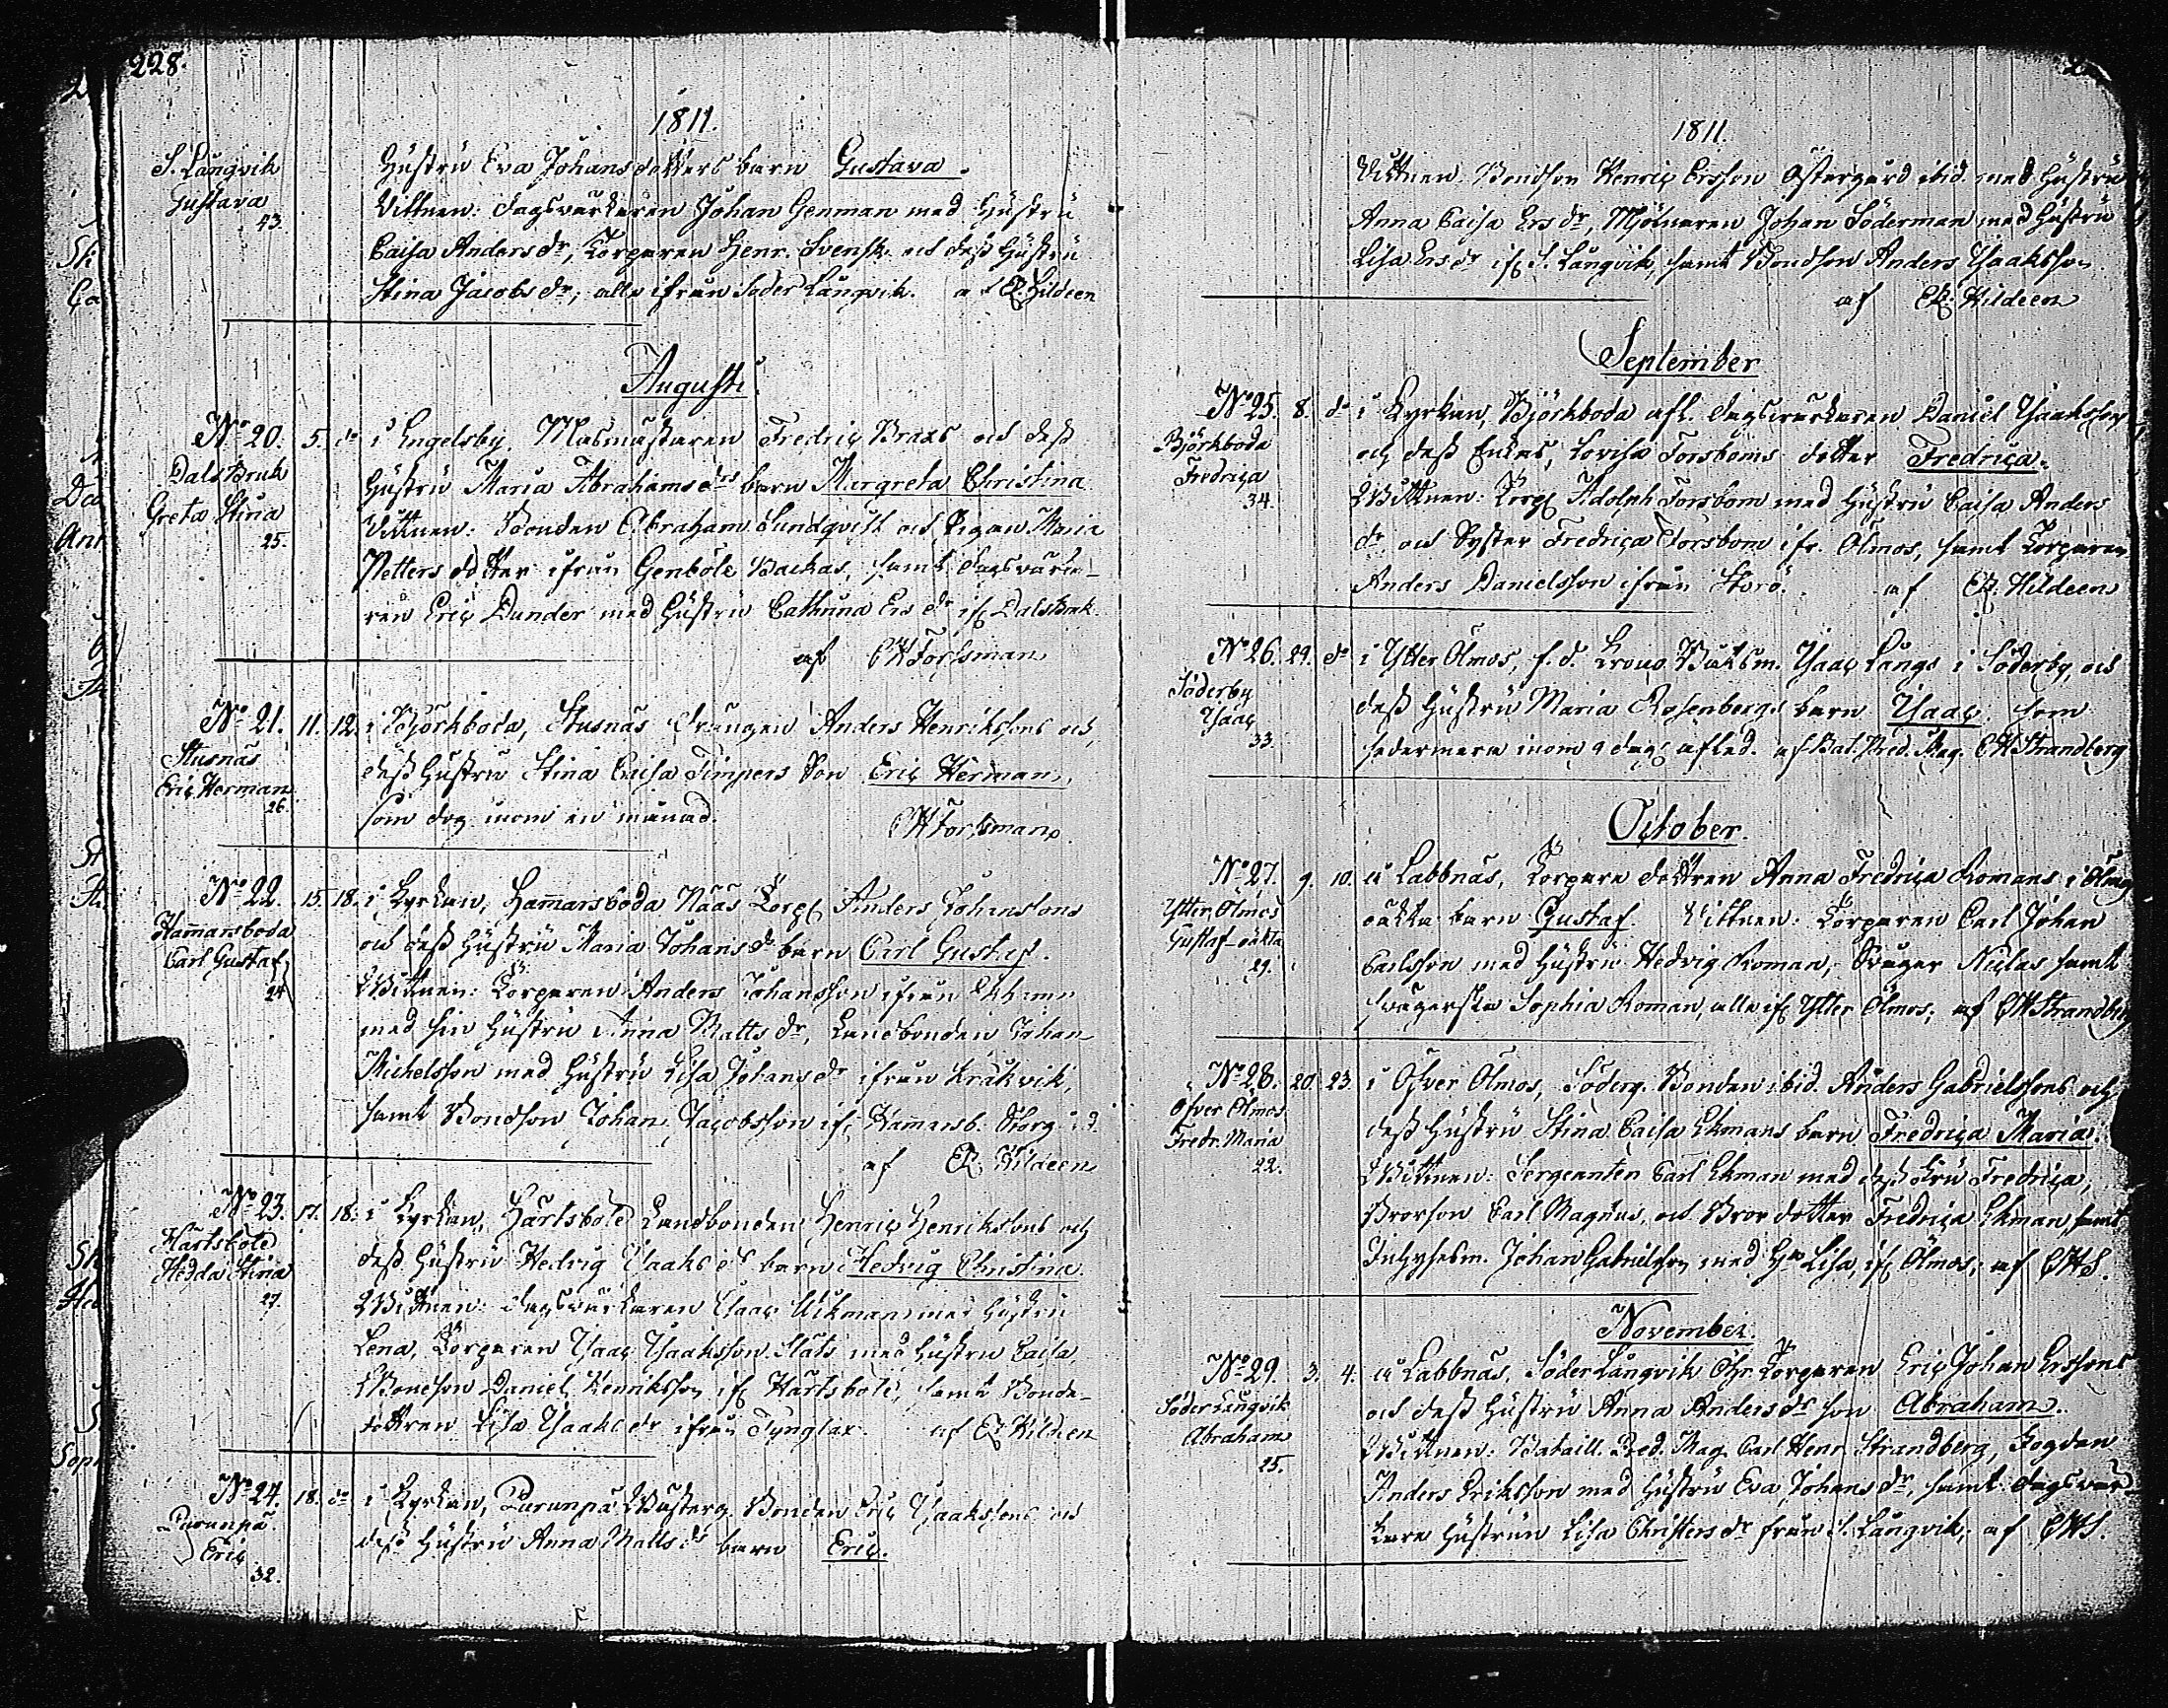 228.
1811.
S. Långvik
Gustava
43.
Hustru Eva Johansdotters barn Gustava.
Vittnen: Dagsverkaren Johan Genman med Hustru
Caisa Anders dr, Torparen Henr. Svensk och dess Hustru
Stina Jacobs dr, alla ifrån Söder Långvik. af Hildeen
Augusti.
No 20. 5. do i Engelsby, Masmästaren Fredric Braxs och dess
Dalsbruk
Greta Stina
25.
Hustru Maria Abrahams drs barn Margreta Christina
Vittnen: Bonden Abraham Sundqvist och Pigan Maria
Petters dotter ifrån Genböle Backas, samt Dagsverka-
ren Eric Dunder med Hustru Cathrina Ers dr if. Dalsbruk
af CHForssman
No 21. 11. 12. i Björkboda, Stusnäs Drängen Anders Henrikssons och
Stusnäs
Eric Herman
26.
dess Hustru Stina Caisa Timpers Son Eric Herman,
som dog inom en månad. CHForssman
No 22. 15. 18. i Kyrkan, Hammarsboda Nääs Torp. Anders Johanssons
Hammarsboda
Carl Gustaf
24
och dess Hustru Maria Johans dr barn Carl Gustaf.
Vittnen: Torparen Anders Johansson ifrån
med sin Hustru Anna Matts dr, Landbonden Johan
Michelsson med Hustru Lisa Johans dr ifrån Kråkvik,
samt Bondson Johan Jacobsson if. Hammarsb. Storg
af Hildeen
No 23. 17. 18. i Kyrkan, Hertsböle Landbonden Henric Henrikssons och
Härtsböle
Hedda Stina
27.
dess Hustru Hedvig Isaks dr barn Hedvig Christina.
Vittnen: Dagsverkaren Isaac Uckman med Hustru
Lena, Torparen Isaac Isaaksson Släts med Hustru Caisa,
Bondson Daniel Henriksson if. Hertsböle, samt Bonde-
dottren Lisa Isaaks dr ifrån Tynglax. af Hildeen
No 24. 18. do i Kyrkan, Purunpä Westerg. Bonden Eric Isaakssons och
Purunpä.
Eric
32.
dess Hustru Anna Matts drs barn Eric.
1811.
Vittnen. Bondson Henric Ersson Östergård ibid. med Hustru
Anna Caisa Ers dr, Mjölnaren Johan Söderman med Hustru
Lisa Ers dr if. S. Långvik, samt Bondson Anders Isaaksson
af Hildeen
September
No 25. 8. do i Kyrkan, Björkboda afl. Dagsverkaren Daniel Isaakssons
Björkboda
Fredrica
34.
och dess Enkas, Lovisa Forsboms dotter Fredrica.
Vittnen: Torp. Adolph Forsbom med Hustru Caisa Anders
dr och Syster Fredrica Forsbom ifr. Ölmos, samt Torparen
Anders Danielsson ifrån Storö. af Hildeen
No 26. 29. do i Ytter Ölmos, f. d. Krono Båtsm. Isaac Långs i Söderby, och
Söderby
Isaac
33.
dess Hustru Maria Rosenbergs barn Isaac som
sedermera inom 9 dag. afled. af Bat. Pred. Mag. CHStrandberg
October.
No 27. 9. 10. å Labbnäs, Torpare dottren Anna Fredrica Romans i Ölmos
Ytter Ölmos
Gustaf oäkta
29.
oäkta barn Gustaf. Vittnen: Torparen Carl Johan
Carlsson med Hustru Hedvig Roman, Svåger Niclas samt
svägerska Sophia Roman, alla if. Ytter Ölmos; af CHStrandberg
No 28. 20. 23. i Öfver Ölmos, Söderg. Bonden ibid. Anders Gabrielssons och
Öfver Ölmos
Fredr. Maria
22.
dess Hustru Stina Caisa Ekmans barn Fredrica Maria.
Vittnen: Sergeanten Carl Ekman med dess Fru Fredrica,
Brorson Carl Magnus, och Brordotter Fredrica Ekman, samt
Johan Gabrielsson med Hu Lisa, if. Ölmos; af CHS.
November.
No 29. 3. 4. å Labbnäs, Söder Långvik Torparen Eric Johan Erssons
Söder Långvik
Abraham
25.
och dess Hustru Anna Anders drs son Abraham.
Vittnen: Bataill. Pred. Mag. Carl Henr. Strandberg, Fogden
Anders Eriksson med Hustru Eva Johans dr, samt Dagsver-
kare Hustrun Lisa Christers dr från S. Långvik; af CHS.